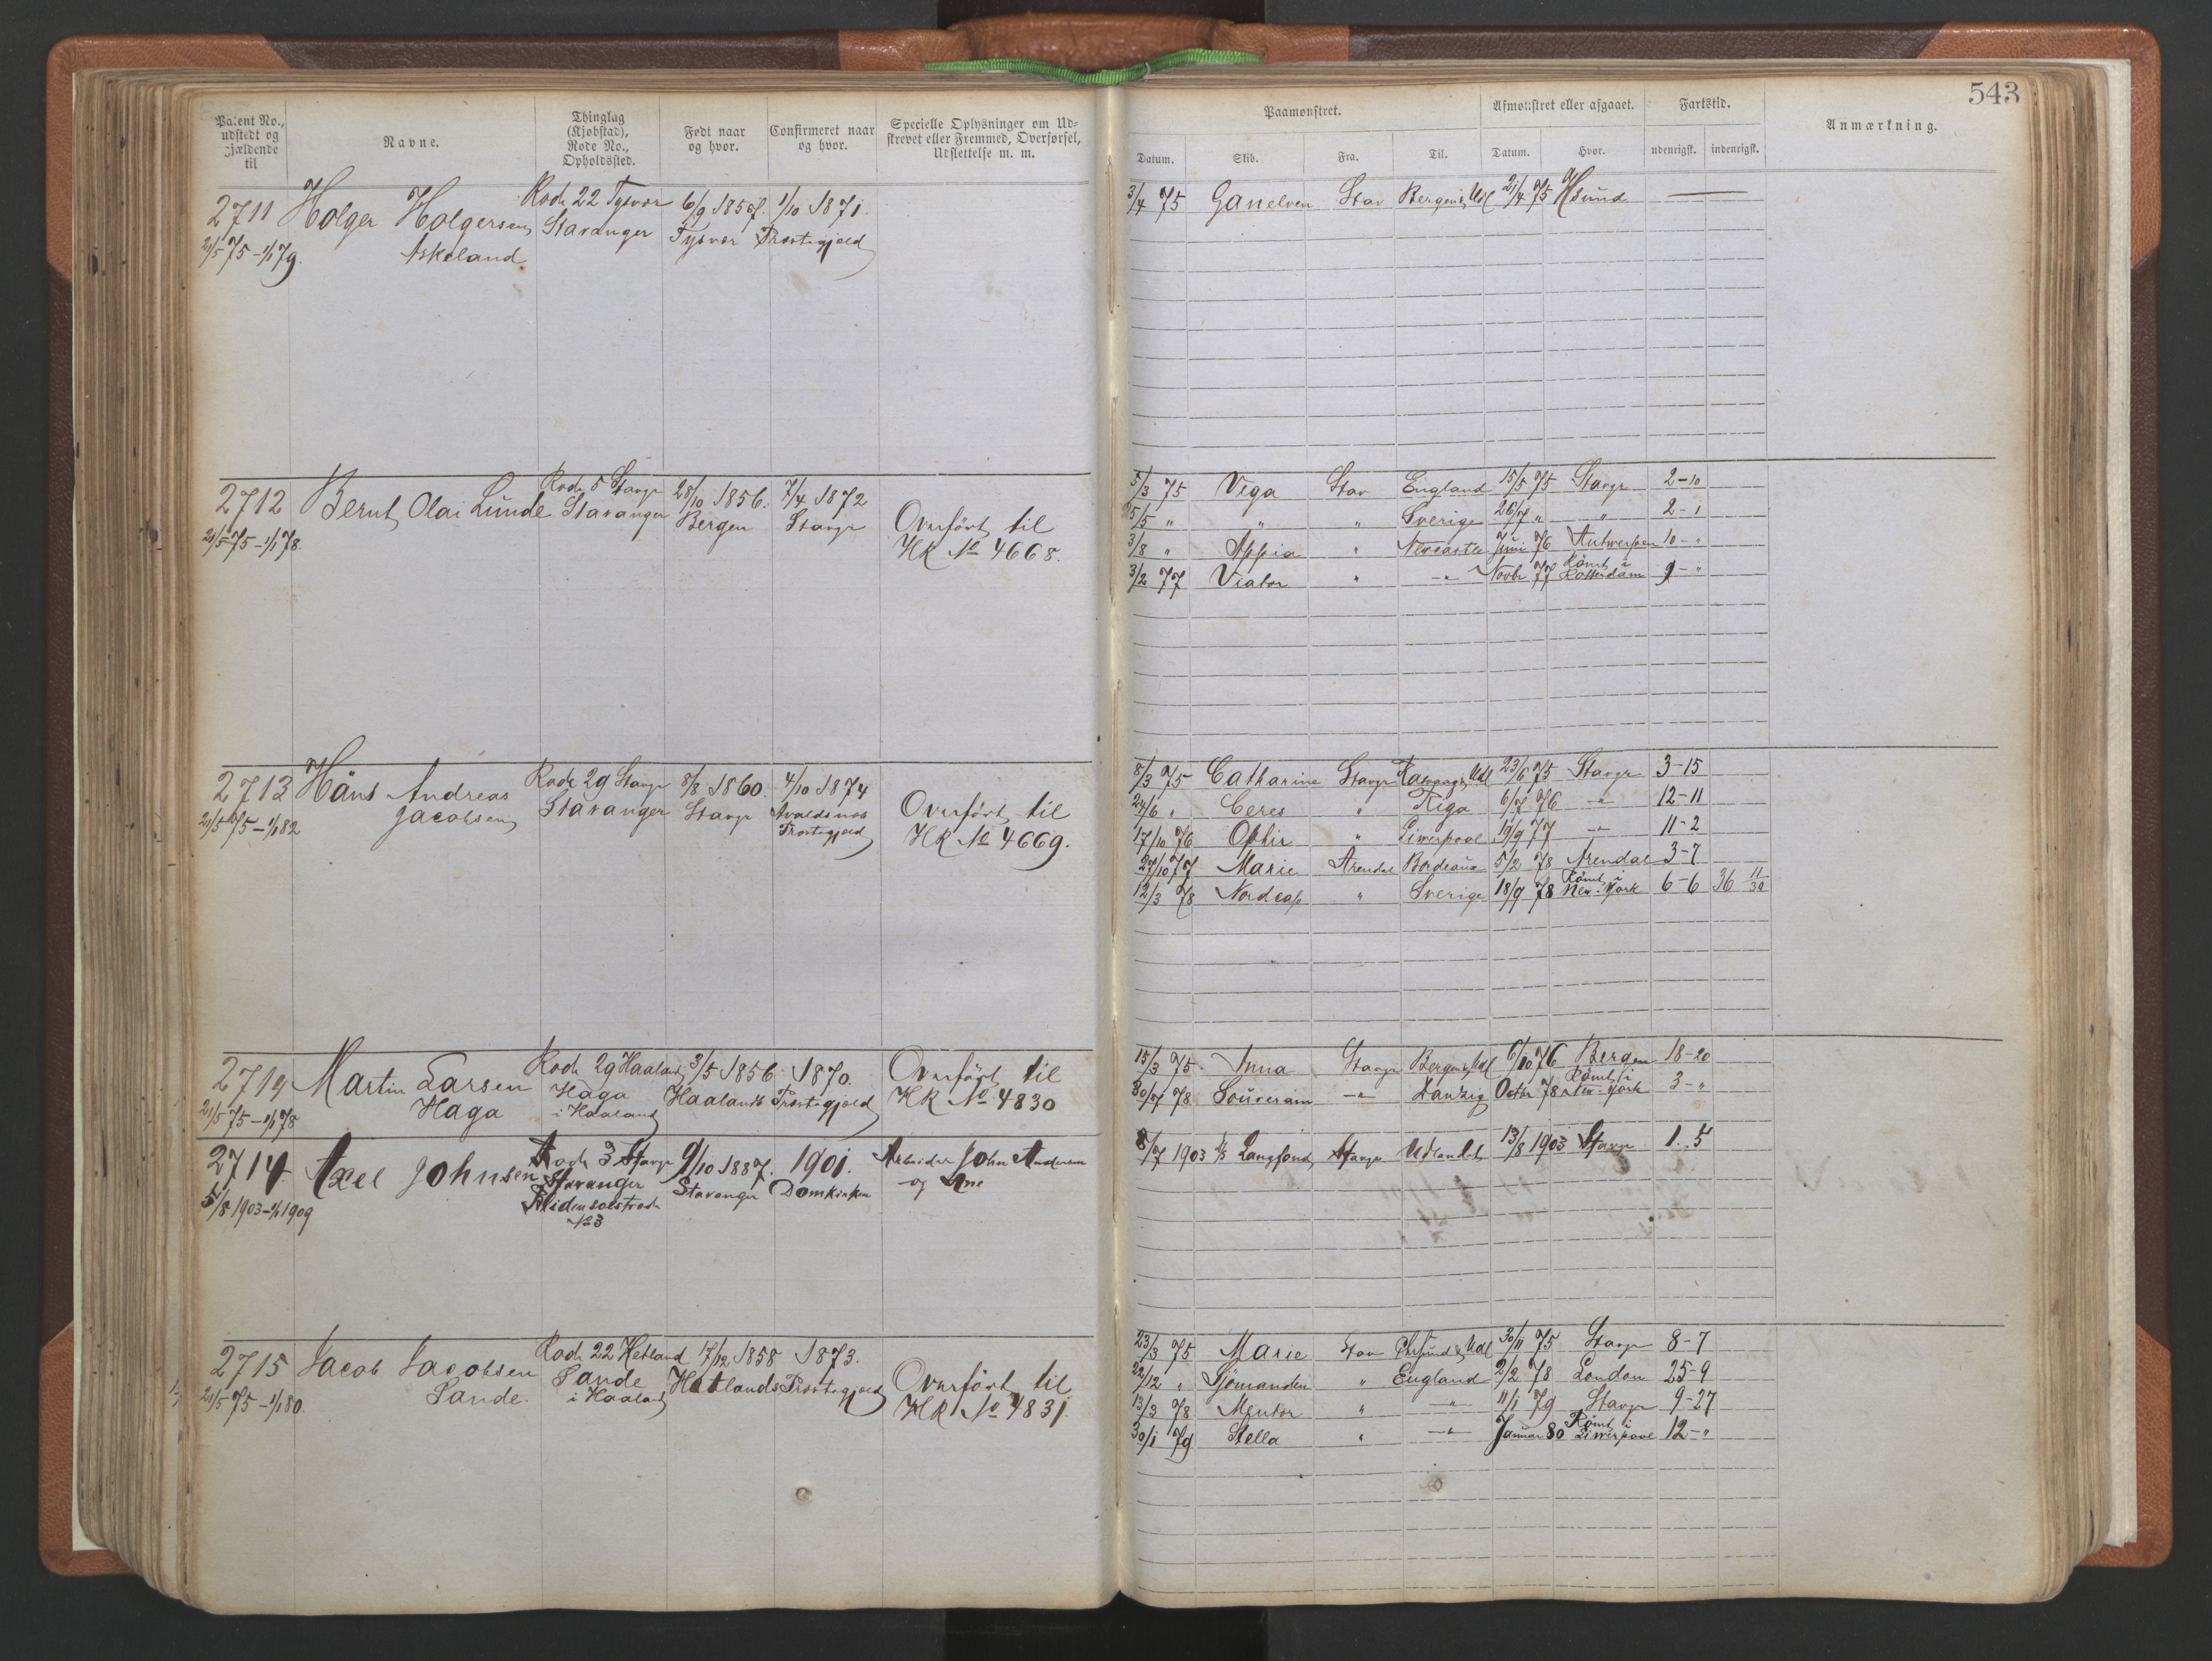 543
Patent No., udstedt og gjældende til
Navne.
Thinglag (Kjøbstad), Rode No., Opholdssted.
Født naar og hvor.
Confirmeret naar og hvor.
Specielle Oplysninger om Udskrevet eller Fremmed, Overførsel, Udslettelse m. m.
Paamønstret.
Afmønstret eller afgaaet.
Fartstid.
Anmærkning.
Datum. Skib. Fra. Til. Datum. Hvor. udenrigsk. indenrigsk.
2711 Holger Holgersen Rode 22 Tysvær 6/9 1857. 1/10 1871.
Stavanger Tysvær Præstegjeld
21/5 75 - 1/1 79. Askeland
3/4 75 Ganelven Stav Bergen & Udl 21/4 75 Hsund —
2712 Bernt Olai Lunde Rode 5 Stavgr 28/10 1856. 7/4 1872
Stavanger Bergen Stavgr Overført til
21/5 75 - 1/1 78. HR No 4668.
5/3 75 Vega Stav England 15/5 75 Stavgr 2-10
25/5 " " " Sverige 26/7 " " 2-1
3/8 " Appia " Newcastle Juni 76 Antwerpen 10-"
3/2 77 Viator " -"- Novbr 77 Rømt i Rotterdam 9-"
2713 Hans Andreas Rode 29 Stavgr 8/8 1860. 4/10 1874
Jacobsen Stavanger Stavgr Avaldsnæs Overført til
21/5 75 - 1/1 82 Præstegjeld HR No 4669.
8/3 75 Catharine Stavgr & Udl 23/6 75 Stavgr 3-15
24/6 " Ceres " Riga 6/7 76 -"- 12-11
17/10 76 Ophir " Liverpool 19/9 77 -"- 11-2
27/10 77 Marie Arendal Bordeaux 5/2 78 Arendal 3-7
12/3 78 Nordcap " Sverige 18/9 78 Rømt i New-York 6-6 36 11/30
2714 Martin Larsen Rode 29 Haaland 3/5 1856 1870. Overført til
Haga Haga Haalands Præstegjeld HR No 4830
21/5 75 - 1/1 78 i Haaland
15/3 75 Anna Stavgr Bergen & Udl 6/10 76 Bergen 18-20
30/7 78 Souverain -"- Danzig Octbr 78 Rømt i New-York 3-"
2714 Axel Johnsen Rode 3 Stavgr 9/10 1887. 1901. Arbeider John Andersen
Stavanger Stavanger Domkirken og Ane
5/8 1903 - 1/1 1909
No 3
8/7 1903 Langfond Stavgr Udlandet 13/8 1903 Stavgr 1. 5
2715 Jacob Jacobsen Rode 22 Hetland 17/12 1858 1873.
Sande. Sande Hetlands Præstegjeld Overført til
21/5 75 - 1/1 80. i Haaland HR No 4831.
23/3 75 Marie Stav Chrsund & Udl 30/11 75 Stavgr 8-7
22/12 " Sjømanden " England 2/2 78 London 25-9
13/3 78 Mentor " -"- 11/1 79 Stavgr 9-27
30/1 79 Stella " -"- Januar 80 Rømt i Liverpool 12-"